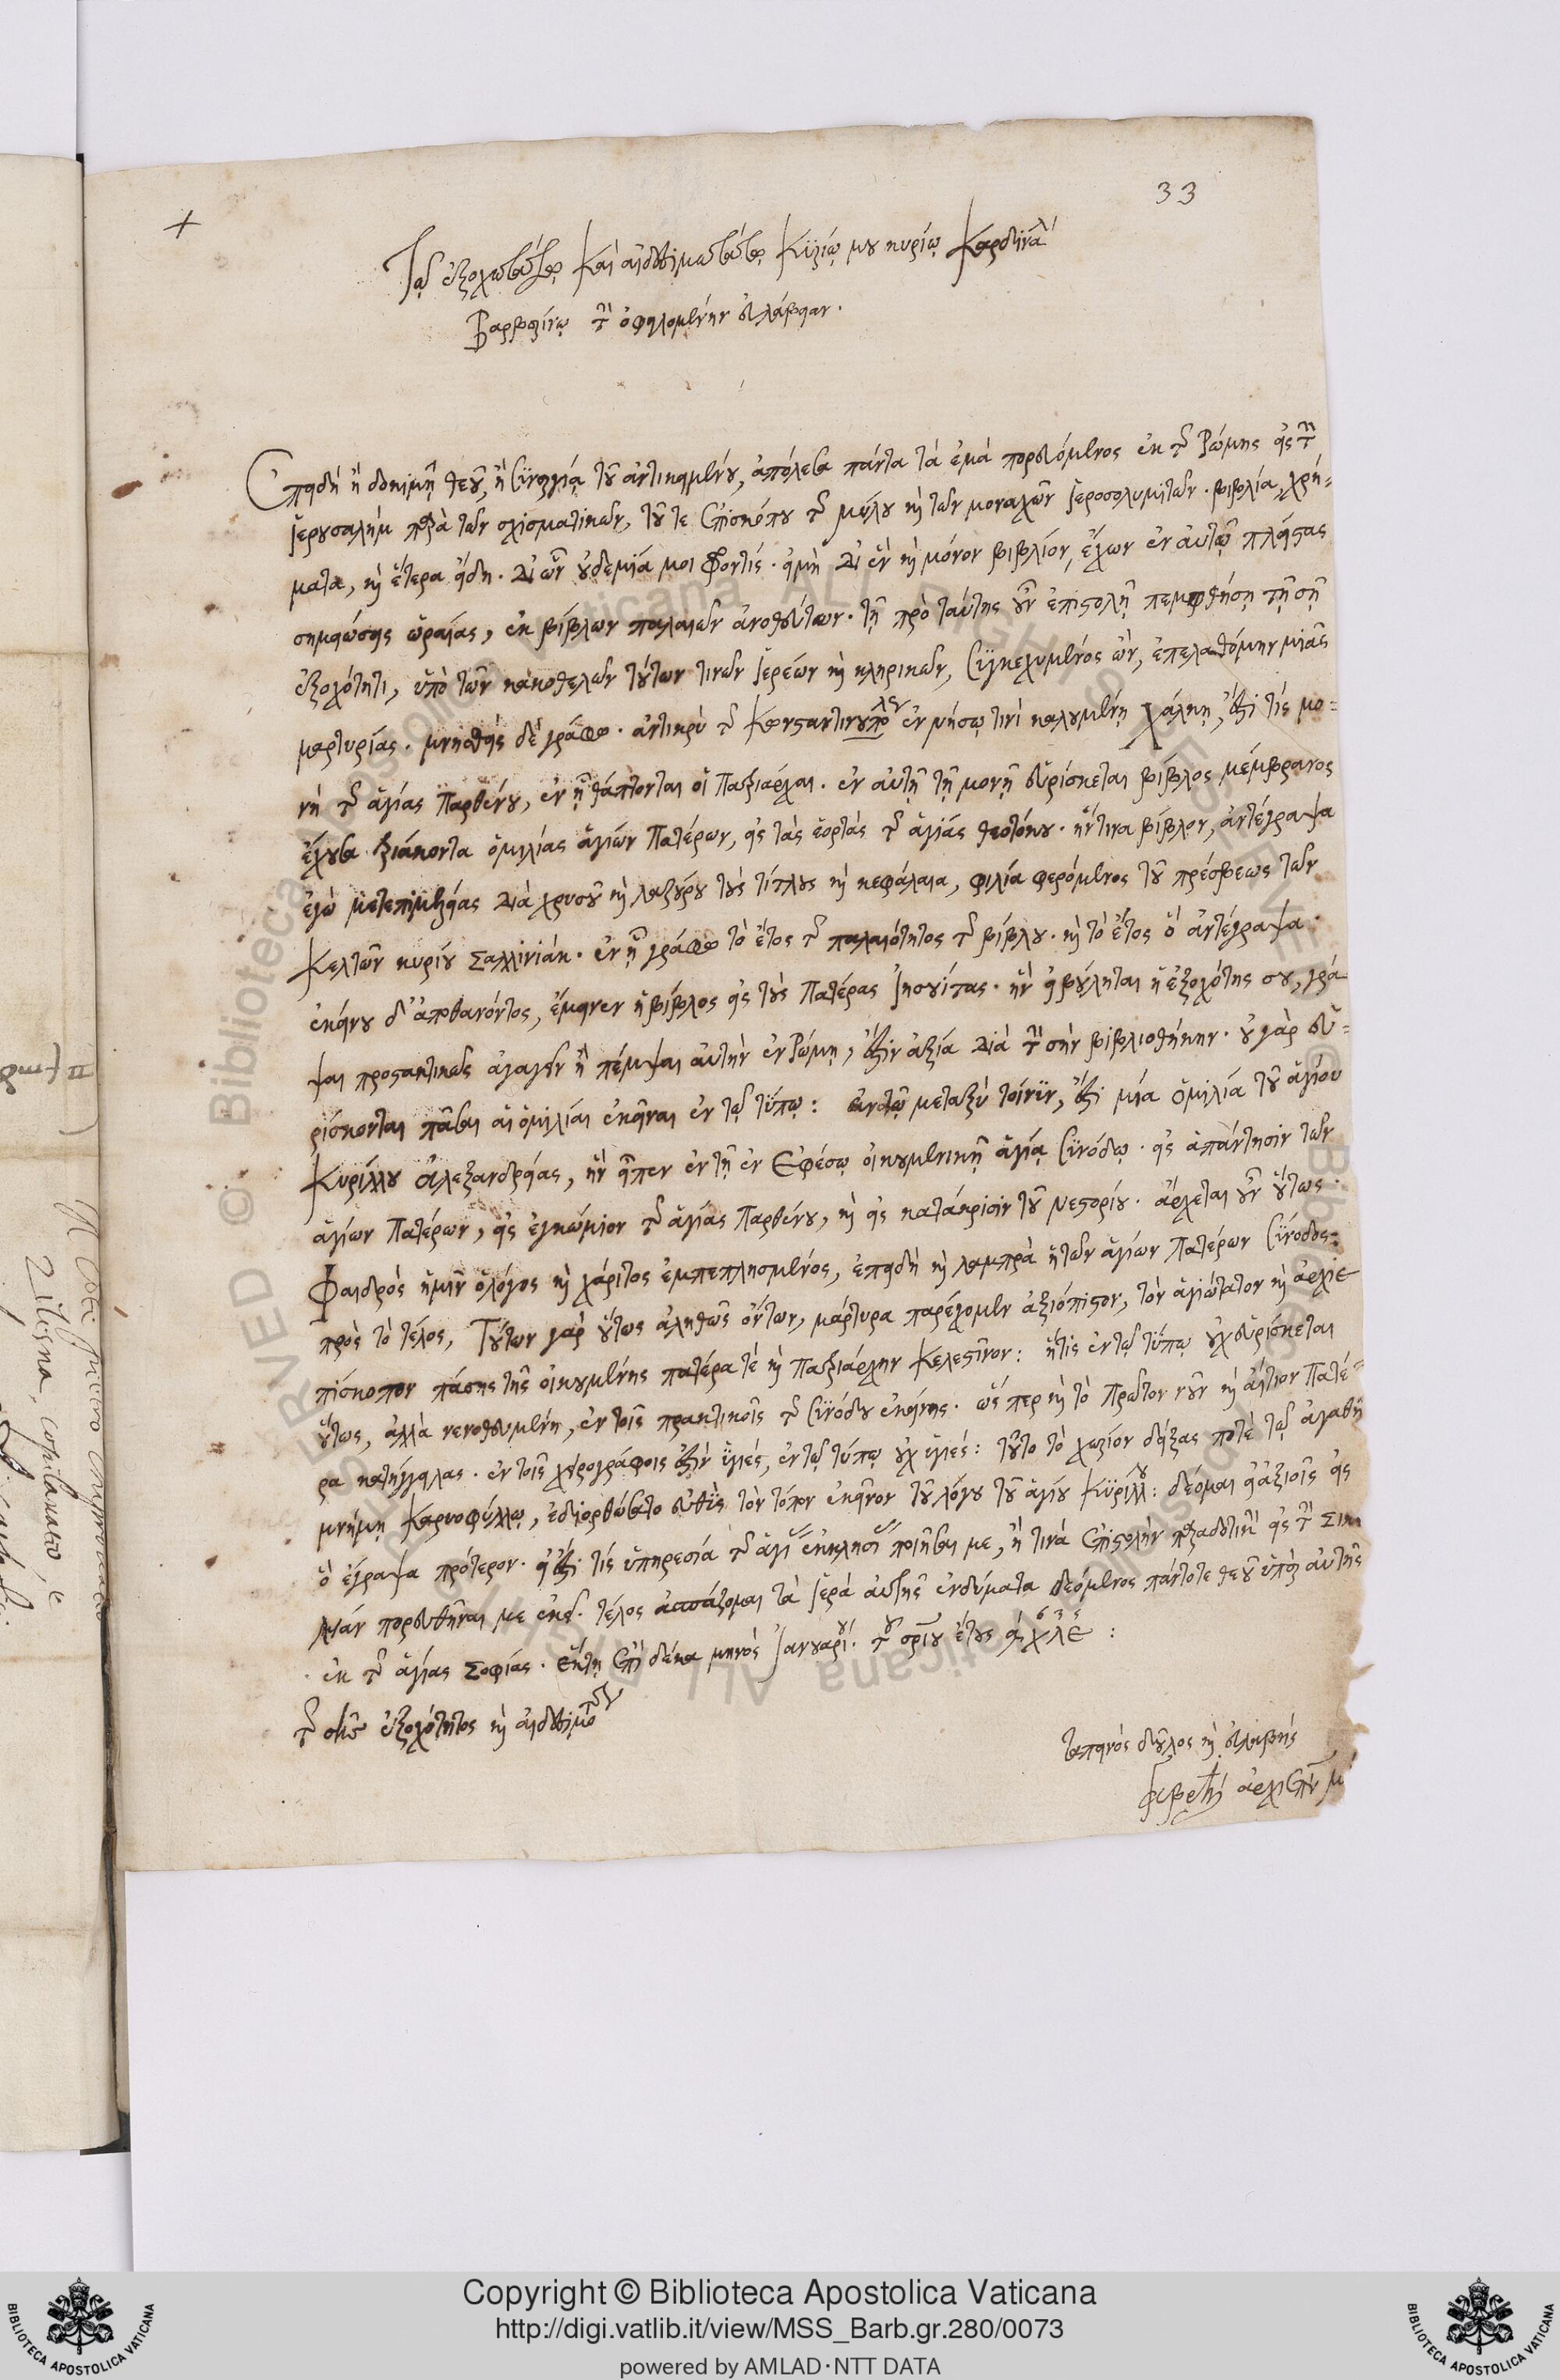 33
+
Τῷ ἐξοχωτάτῳ καὶ αἰδεσιμωτάτῳ Κυρίῳ μου κυρίῳ Καρδινα^λί
Βαρβερίνῳ τὴν ὀφειλομένην εὐλάβειαν.
Επειδὴ ἢ δοκιμῇ θεοῦ, ἢ συνεργίᾳ τοῦ ἀντικειμένου, ἀπώλεσα πάντα τὰ ἐμὰ πορευόμενος ἐκ τῆς Ρώμης εἰς τὴν
Ἱερουσαλὴμ παρὰ τῶν σχισματικῶν, τοῦ τε Επισκόπου τῆς μήλου καὶ τῶν μοναχῶν Ἱεροσολυμιτῶν. βιβλία, χρή=
ματα, καὶ ἕτερα εἴδη. δι ὧν οὐδεμία μοι φροντίς. εἰμὴ δι ἓν καὶ μόνον βιβλίον, ἔχων ἐν αὐτῷ πλείστας
σημειώσεις ὡραίας, ἐκ βίβλων παλαιῶν ἀνοθεύτων. τῇ πρὸ ταύτης οὖν ἐπιστολῇ πεμφθείσῃ τῇ σῇ
ἐξοχότητι, ὑπὸ τῶν κακοθελῶν τούτων τινῶν ἱερέων καὶ κληρικῶν, συγκεχυμένος ὢν, ἐπελαθόμην μιᾶς
μαρτυρίας. μνησθεὶς δὲ γράφω. ἀντικρὺ τῆς Κωνσταντινουπό^λεως ἐν νήσῳ τινὶ καλουμένῃ Χάλκῃ, ἐστί τις μο=
νὴ τῆς ἁγίας Παρθένου, ἐν ᾗ θάπτονται οἱ Πατριάρχαι. ἐν αὐτῇ τῇ μονῇ εὑρίσκεται βίβλος μέμβρανος
ἔχουσα τριάκοντα ὁμιλίας ἁγίων Πατέρων, εἰς τὰς ἑορτὰς τῆς ἁγίας θεοτόκου. ἥντινα βίβλον, ἀντέγραψα
ἐγὼ διὰ χρυσοῦ καὶ λαζούρου τοὺς τίτλους καὶ κεφάλαια, φιλίᾳ φερόμενος τοῦ πρέσβεως τῶν
Κελτῶν κυρίου Σαλλινιάκ. ἐν ᾗ γράφω τὸ ἔτος τῆς παλαιότητος τῆς βίβλου. καὶ τὸ ἔτος ὃ ἀντέγραψα.
ἐκείνου δ' ἀποθανόντος, ἔμεινεν ἡ βίβλος εἰς τοὺς Πατέρας Ἰησουίτας. ἣν εἰ βούληται ἡ ἐξοχότης σου, γρά
ψαι προστακτικῶς ἀγαγεῖν ἢ πέμψαι αὐτὴν ἐν Ρώμῃ, ἐστὶν ἀξία διὰ τὴν σὴν βιβλιοθήκην. οὐ γὰρ εὑ=
ρίσκονται πᾶσαι αἱ ὁμιλίαι ἐκεῖναι ἐν τῷ τύπῳ: ἐν τῷ μεταξὺ τοίνυν, ἐστὶ μία ὁμιλία τοῦ ἁγίου
Κυρίλλου ἀλεξανδρείας, ἣν εἶπεν ἐν τῇ ἐν Εφέσῳ οἰκουμενικῇ ἁγίᾳ συνόδῳ. εἰς ἀπάντησιν τῶν
ἁγίων Πατέρων, εἰς ἐγκώμιον τῆς ἁγίας Παρθένου, καὶ εἰς κατάκρισιν τοῦ Νεστορίου. ἄρχεται οὖν οὕτως.
Φαιδρὸς ἡμῖν ὁ λόγος καὶ χάριτος ἐμπεπλησμένος, ἐπειδὴ καὶ λαμπρὰ ἡ τῶν ἁγίων Πατέρων σύνοδος:
πρὸς τὸ τέλος, Τούτων γὰρ οὕτως ἀληθῶς ὄντων, μάρτυρα παρέχομεν ἀξιόπιστον, τὸν ἁγιώτατον καὶ ἀρχιε
πίσκοπον πάσης τῆς οἰκουμένης πατέρα τὲ καὶ Πατριάρχην Κελεστῖνον: ἥτις ἐν τῷ τύπῳ οὐχ εὑρίσκεται
οὕτως, ἀλλὰ νενοθευμένη, ἐν τοῖς πρακτικοῖς τῆς συνόδου ἐκείνης. ὥσπερ καὶ τὸ Πρῶτον νοῦν καὶ αἴτιον Πατέ=
ρα κατήγγειλας. ἐν τοῖς χειρογράφοις ἐστὶν ὑγιές, ἐν τῷ τύπῳ οὐχ ὑγιές: τοῦτο τὸ χωρίον δείξας ποτὲ τῷ ἀγαθῇ
μνήμῃ Καρυοφύλλῳ, ἐδιορθώσατο εὐθὺς τὸν τόπον ἐκεῖνον τοῦ λόγου τοῦ ἁγίου Κυρίλλου: δέομαι εἰ ἀξιοῖς εἰς
ὃ ἔγραψα πρότερον. εἰ ἐστί τις ὑπηρεσία τῆς ἁγίας ἐκκλησίας ποιῆσαι με, ἢ τινὰ Επιστολὴν εἰς τὴν
με ἐκεῖ. τέλος ἀσπάζομαι τὰ ἱερὰ αὐτῆς ἐνδύματα δεόμενος πάντοτε θεοῦ ὑπὲρ αὐτῆς
. ἐκ τῆς ἁγίας Σοφίας. ἕκτῃ Επὶ δέκα μηνὸς Ἰανουαρί^ου. τοῦ σρίου ἔτους αχλε :
τῆς σῆς ἐξοχότητος καὶ αἰδεσιμό^τητος
ταπεινὸς δοῦλος καὶ εὐλαβὴς
Copyright © Biblioteca Apostolica Vaticana
http://digi.vatlib.it/view/MSS_Barb.gr.280/0073
powered by AMLAD·NTT DATA